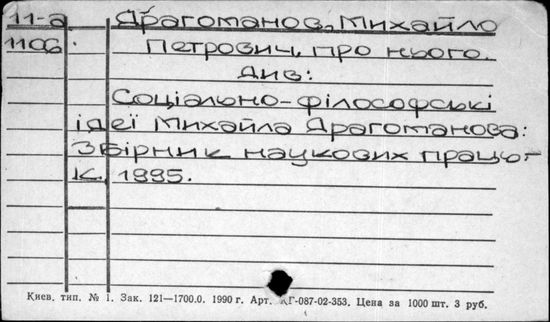 11-а Драгоманов, Михайло
1106. Петрович, про нього.
Див:
Соціально-філософські
ідеї Михайла Драгоманова:
Збірник наукових праць.-
К., 1995.
Киев. тип. № 1. Зак. 121—1700.0. 1990 г. Арт. КГ-087-02-353. Цена за 1000 шт. 3 руб.